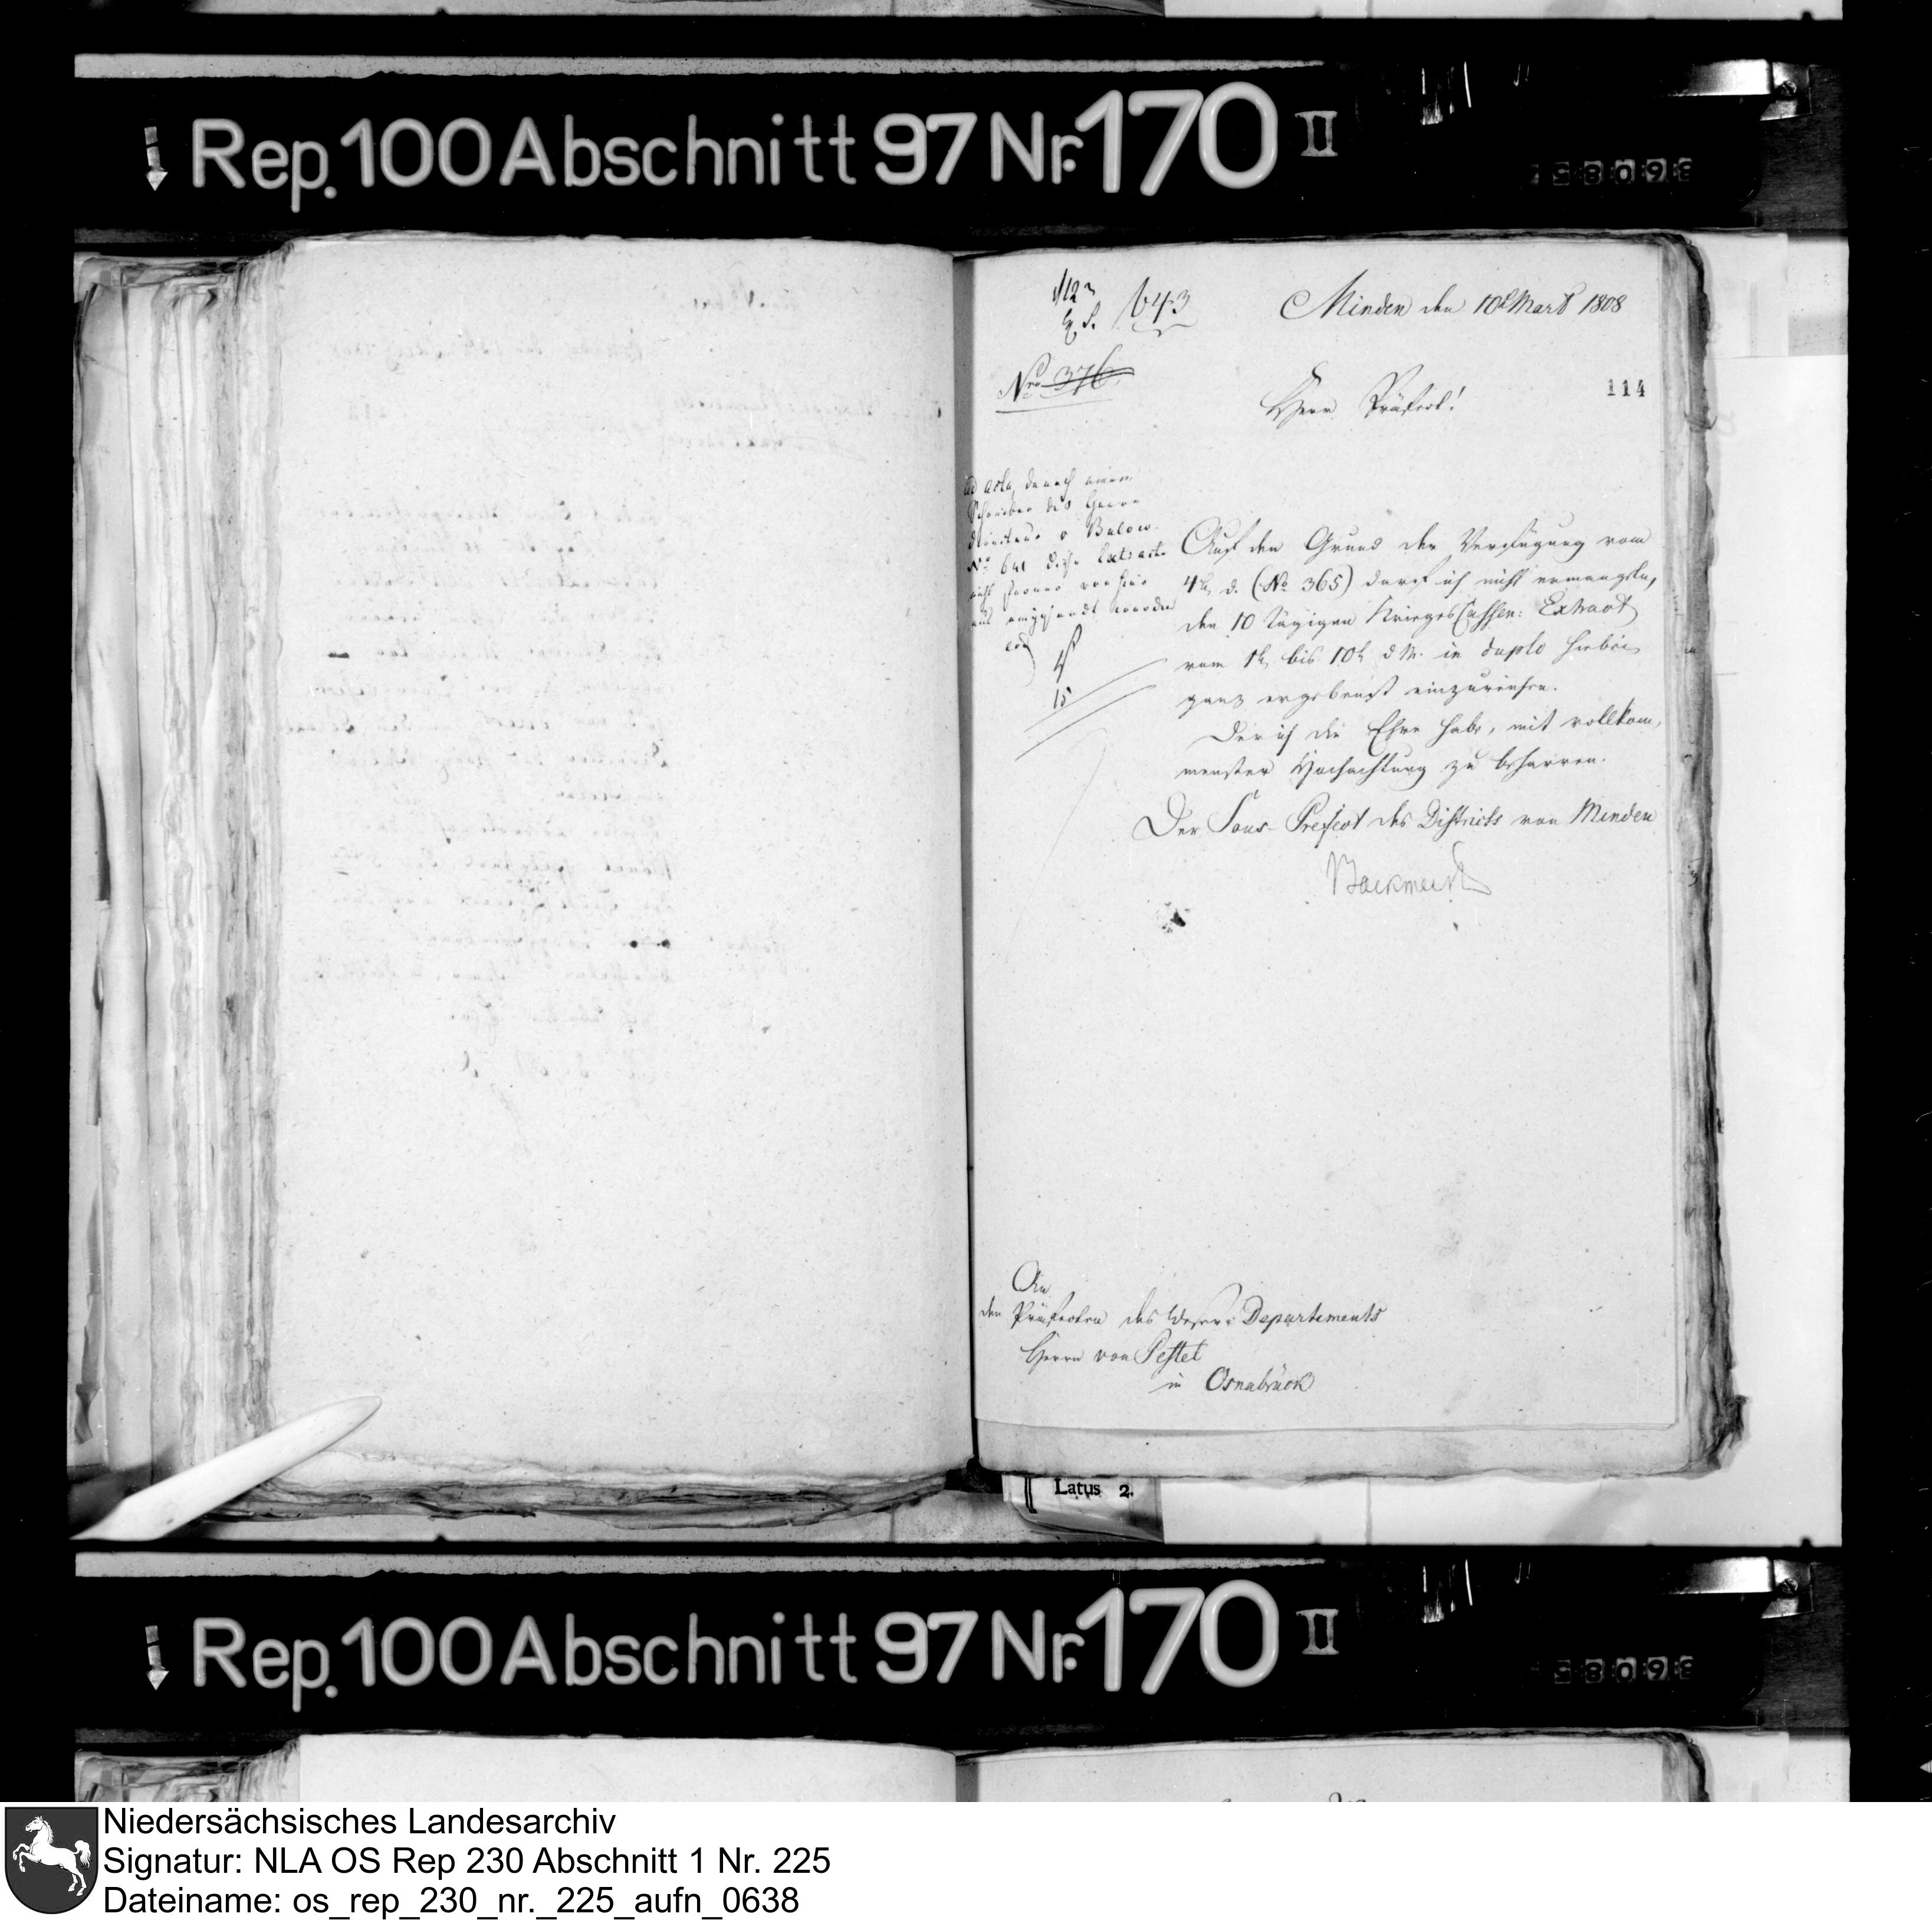 Rep. 100 Abschnitt 97 Nr. 170 II
643
Minden den 10t Mart 1808
No 376
114
Herr Präfect!
ad acta, da nach einem
Schreiben des Herrn
Ministers v Bulow
No 641 diese Extracte
nicht ferner von hier
aus eingesandt werden
15
Auf den Grund der Verfügung vom
4ten d. (No 365) darf ich nicht ermangeln,
den 10 tägigen KriegesCassen: Extract
vom 1t bis 10t d M. in duplo hiebei
ganz ergebenst einzureichen.
Der ich die Ehre habe, mit vollkom,
menster Hochachtung zu beharren.
Der Sous-Prefect des Districts von Minden
Backmeister
An
den Präfecten des Weser: Departements
Herrn von Pestel
in Osnabrück
Latus 2.
Rep. 100 Abschnitt 97 Nr. 170 II
Niedersächsisches Landesarchiv
Signatur: NLA OS Rep 230 Abschnitt 1 Nr. 225
Dateiname: os_rep_230_nr._225_aufn_0638